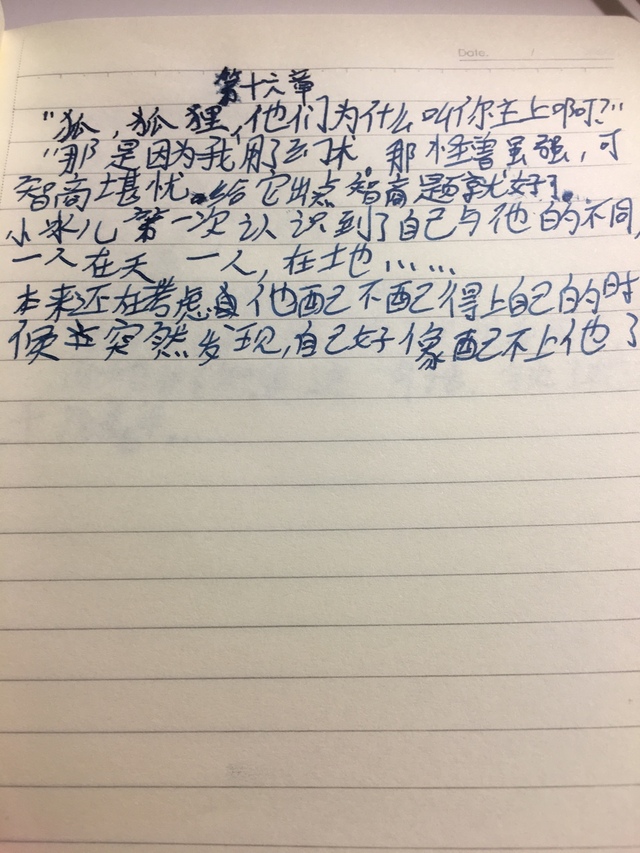 Date.
第十六章
"狐,狐狸,他们为什么叫你主上啊?"
"那是因为我用了幻术。那怪兽虽强,可
智商堪忧。给它出点智商题就好了。
小冰儿第一次认识到了自己与他的不同,
一人在天 一人,在土地……
本来还在考虑 他配不配得上自己的时
候 突然发现,自己好像配不上他了